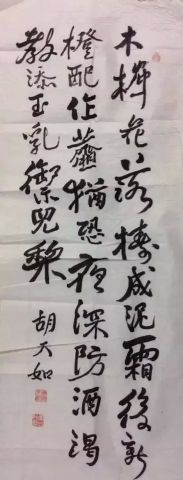 木樨花落擣成泥霜後新
橙配作虀猶恐夜深防酒渴
教添玉乳禦兒棃
胡天如